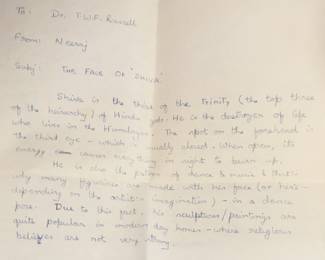 To: Dr. T.W.F. Russell
From: Neeraj
Subj: THE FACE OF "SHIVA"
Shiva is the third of the Trinity (the top three
of the heirarchy) of Hindu gods. He is the destroyer of life
who lives in the Himalayas. The spot on the forehead is
the third eye - which is usually closed. When open, its
energy causes everything in sight to burn up.
He is also the patron of dance & music & that's
why many figurines are made with his face (or hers -
depending on the artist's imagination) - in a dance
pose. Due to this part, his sculptures/paintings are
quite popular in modern day homes - where religious
believes are not very strong.